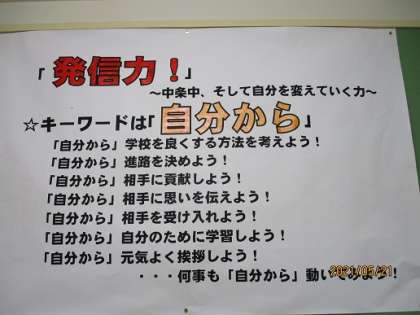 「発信力！」
～中条中、そして自分を変えていく力～
☆キーワードは「自分から」
「自分から」学校を良くする方法を考えよう！
「自分から」進路を決めよう！
「自分から」相手に貢献しよう！
「自分から」相手に思いを伝えよう！
「自分から」相手を受け入れよう！
「自分から」自分のために学習しよう！
「自分から」元気よく挨拶しよう！
・・・何事も「自分から」動いてみよう！
2021/05/21